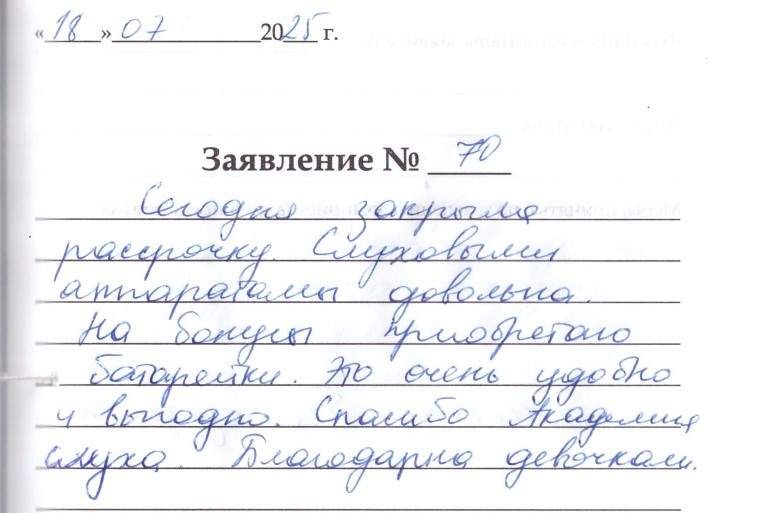 «18» 07 2025 г.
Заявление № 70
Сегодня закрыла
рассрочку. Слуховыми
аппаратамы довольна.
На бонусы приобретаю
батарейки. Это очень удобно
и выгодно. Спасибо Академия
слуха. Благодарна девочкам.